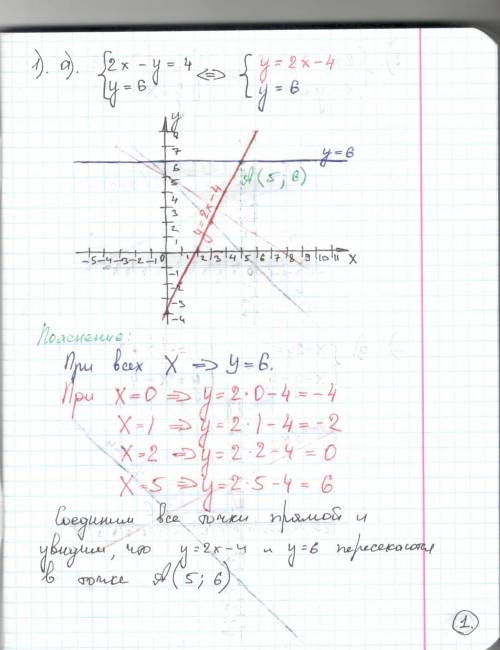 1). а). { 2x - y = 4 <=> { y = 2x-4
y = 6 y = 6
y
8
7
6 y=6
5 A(5; 6)
4 y=2x-4
3
2
1
-5 -4 -3 -2 -1 0 1 2 3 4 5 6 7 8 9 10 11 x
-1
-2
-3
-4
Пояснение:
При всех X => y=6.
При X=0 => y=2·0-4=-4
X=1 => y=2·1-4=-2
X=2 => y=2·2-4=0
X=5 => y=2·5-4=6
Соединим все точки прямой и
увидим, что y=2x-4 и y=6 пересекаются
в точке A(5; 6)
1.